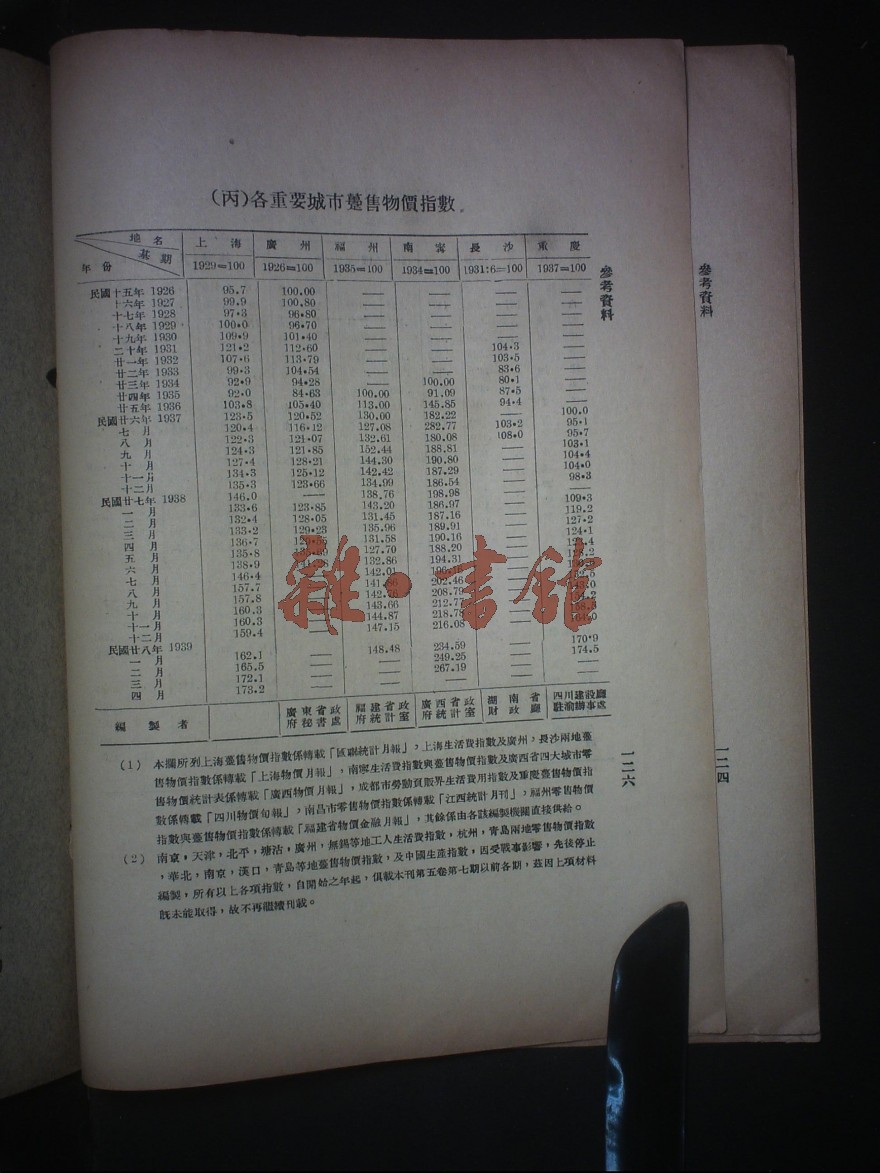 (丙)各重要城市躉售物價指數
地名 上海 廣州 福州 南寧 長沙 重慶
年份 基期 1929=100 1926=100 1935=100 1934=100 1931:6=100 1937=100
民國十五年 1926 95.7 100.00 — — — —
十六年 1927 99.9 100.80 — — — —
十七年 1928 97.3 96.80 — — — —
十八年 1929 100.0 96.70 — — — —
十九年 1930 109.9 101.40 — — — —
二十年 1931 121.2 112.60 — — 104.3 —
廿一年 1932 107.6 113.79 — — 103.5 —
廿二年 1933 99.3 104.54 — — 83.6 —
廿三年 1934 92.9 94.28 — 100.00 80.1 —
廿四年 1935 92.0 84.63 100.00 91.09 87.5 —
廿五年 1936 103.8 105.40 113.00 145.85 94.4 —
民國廿六年 1937 123.5 120.52 130.00 182.22 — 100.0
七月 120.4 116.12 127.08 282.77 103.2 95.1
八月 122.3 121.07 132.61 180.08 108.0 95.7
九月 124.3 121.85 152.44 188.81 — 103.1
十月 127.4 128.21 144.30 190.80 — 104.4
十一月 134.3 125.12 142.42 187.29 — 104.0
十二月 135.3 123.66 134.99 186.54 — 98.3
民國廿七年 1938 146.0 — 138.76 198.98 —
一月 133.6 123.85 143.20 186.97 — 109.3
二月 132.4 128.05 131.45 187.16 — 119.2
三月 133.2 129.23 135.96 189.91 — 127.2
四月 136.7 131.58 190.16 — 124.1
五月 135.8 127.70 188.20 —
六月 138.9 132.86 194.31 —
七月 146.4 — 142.01 —
八月 157.7 — 202.46 —
九月 157.8 — 208.79 —
十月 160.3 — 143.66 212.77 —
十一月 160.3 — 144.87 218.78 —
十二月 159.4 — 147.15 216.08 —
民國廿八年 1939
一月 162.1 — 148.48 234.59 — 170.9
二月 165.5 — — 249.25 — 174.5
三月 172.1 — — 267.19 — —
四月 173.2 — — — — —
編製者 廣東省政府秘書處 福建省政府統計室 廣西省政府統計室 湖南省財政廳 四川建設廳駐渝辦事處
(1) 本欄所列上海躉售物價指數係轉載「區聯統計月報」,上海生活費指數及廣州,長沙兩地躉
售物價指數係轉載「上海物價月報」,南寧生活費指數與躉售物價指數及廣西省四大城市零
售物價統計表係轉載「廣西物價月報」,成都市勞動負販界生活費用指數及重慶躉售物價指
數係轉載「四川物價旬報」,南昌市零售物價指數係轉載「江西統計月刊」,福州零售物價
指數與躉售物價指數係轉載「福建省物價金融月報」,其餘係由各該編製機關直接供給。
(2) 南京,天津,北平,塘沽,廣州,無錫等地工人生活費指數,杭州,青島兩地零售物價指數
,華北,南京,漢口,青島等地躉售物價指數,及中國生產指數,因受戰事影響,先後停止
編製,所有以上各項指數,自開始之年起,俱載本刊第五卷第七期以前各期,茲因上項材料
旣未能取得,故不再繼續刊載。
參考資料
一二六
參考資料
一二四
雜·書館